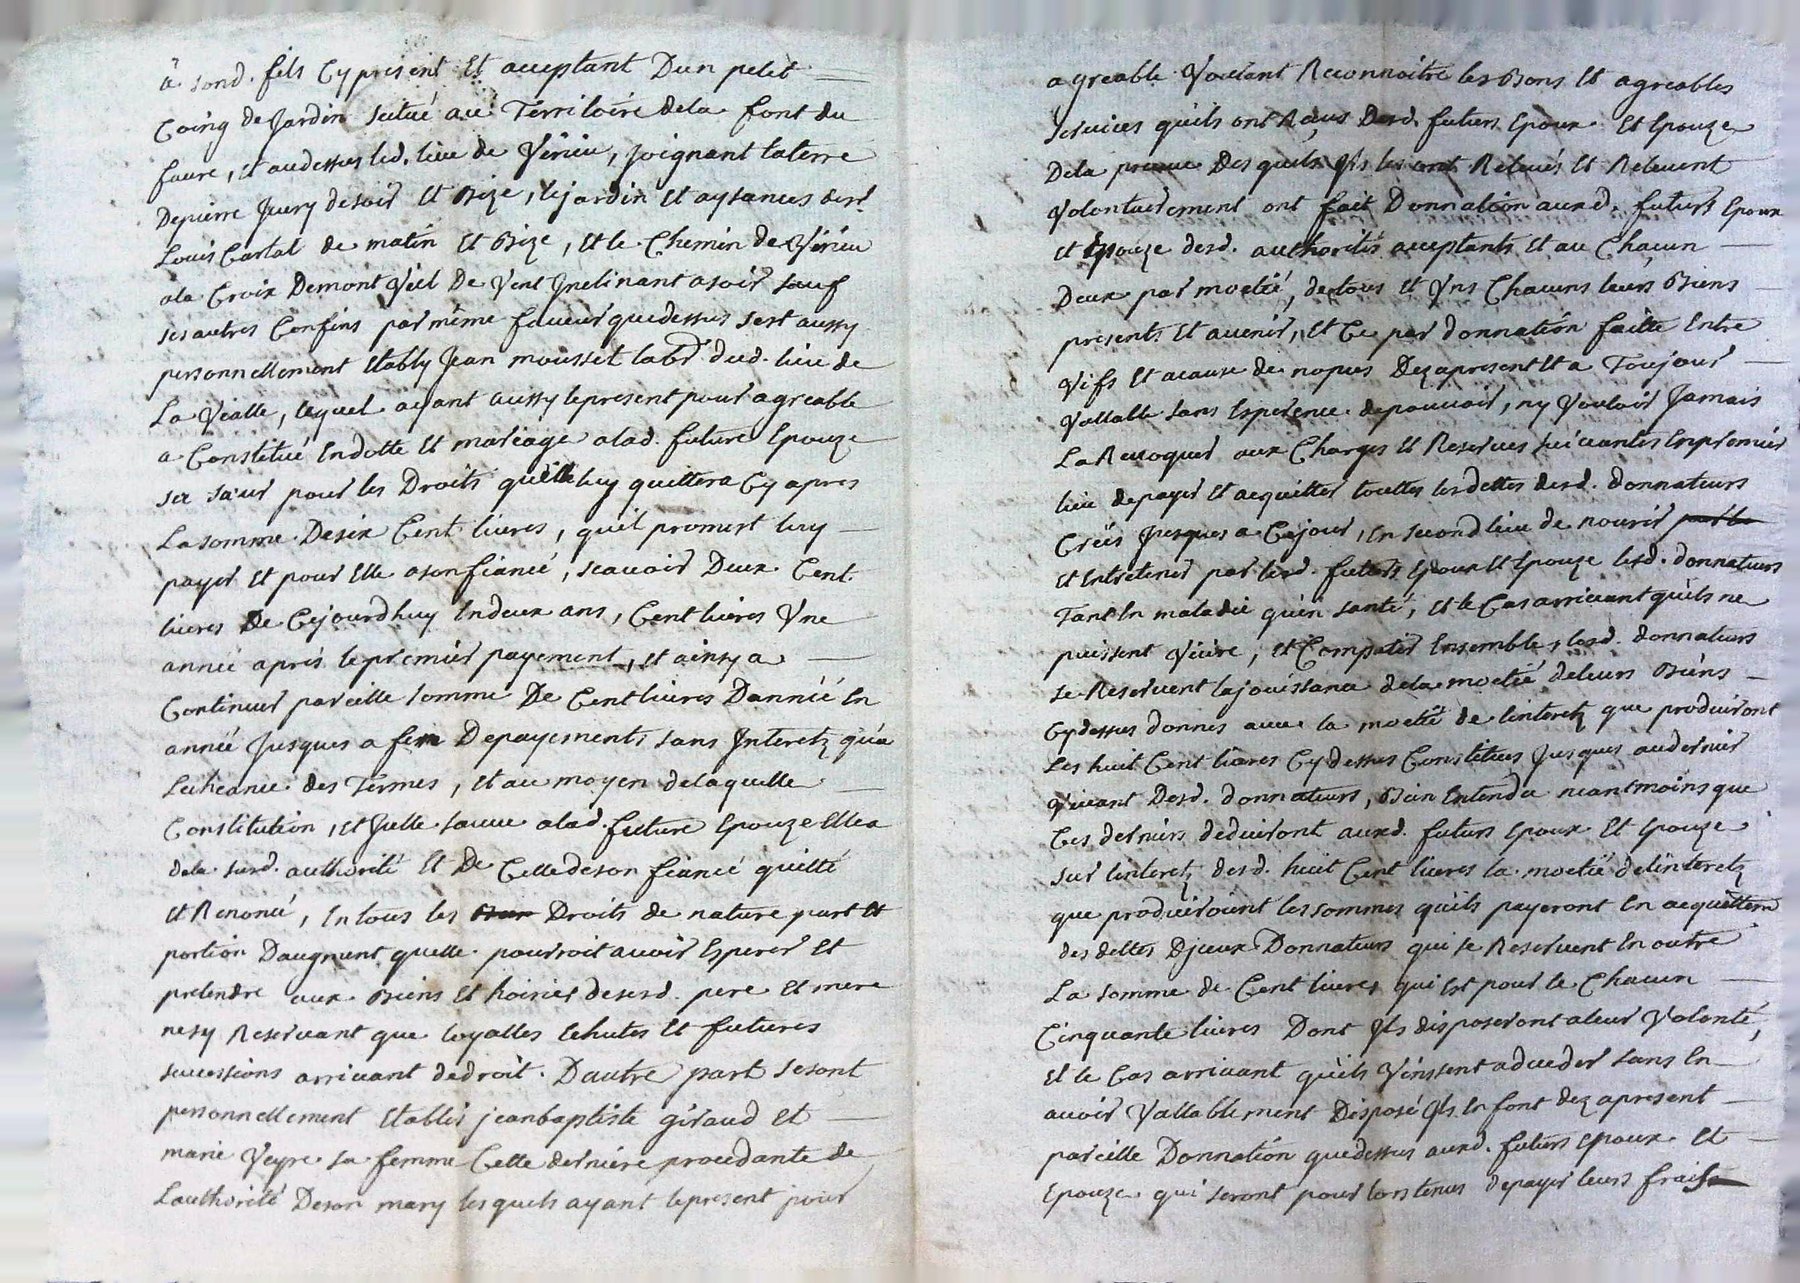 à sond. fils Cy present Et acceptant Dun petit
Coing de Jardin scitué au Territoire dela font du
faure, Et audessus lud. lieu de Vérieu, joignant la terre
Depierre Jeury de soir Et Bize, le jardin Et aysances dud.
Louis Carlat de matin Et Bize, Et le Chemin de Vérieu
ala Croix Demont Viel De Vent Inclinant a soir sauf
ses autres Confins par même faveur que dessus sest aussy
personnellement Etably Jean mousset labr. dud. lieu de
La Vialle, lequel ayant aussy lepresent pour agreable
a Constitué Endotte Et mariage alad. future Epouze
sa sœur pour les Droits qu'elle luy quittera Cy apres
La somme Desix Cent livres, quil promest luy
payer Et pour Elle a son fiancé, scavoir Deux Cent
livres De Cejourdhuy Indeux ans, Cent livres Vne
année aprés le premier payement, Et ainsy a
Continuer pareille somme De Cent livres Dannéé En
année Jusques a fin Depayements sans Interetz qua
Lecheance des Termes, Et au moyen delaquelle
Constitution, Et Icelle sauve alad. future Epouze Ellea
dela susd. authorité Et De Celle deson fiancé quitté
Et Renoncé, En tous les Droits de nature part Et
portion Daugment quelle pourroit avoir Esperer Et
pretendre aux Biens Et hoiries desesd. pere Et mere
nesy Reservant que loyalles Echutes Et futures
successions arrivant dedroit. Dautre part sesont
personnellement Etablis jeanbaptiste giraud Et
marie Veyre sa femme Cette derniere procedante de
Lauthorité Deson mary lesquels ayant lepresent pour
agreable Voulant Reconnoitre les Bons Et agreables
services quils ont Reçus Desd. futurs Epoux Et Epouze
Dela preuve Desquels Ils les ont Relevés Et Relevent
Volontairement ont fait Donnation auxd. futurs Epoux
et Epouze desd. authorités acceptants Et au Chacun
Deux par moetié, detous Et Vns Chacuns leurs Biens
presents Et avenir, Et Ce par donnation faitte Entre
Vifs Et acause de nopces Dezapresent Et a Toujour
Vallable sans Esperence depouvoir, ny Vouloir Jamais
La Revoquer aux Charges Et Reserves suivantes Enpremier
lieu depayer Et acquitter touttes les dettes desd. donnateurs
Créés Jusques a Cejour, En second lieu de nourir
Et Entretenir par lesd. futurs Epoux Et Epouze lesd. donnateurs
Tant En maladie qu'en santé, Et le Cas arrivant quils ne
puissent Vivre, Et Compatir Ensemble, lesd. donnateurs
se Reservent la jouissance dela moetié deleurs Biens
Cydessus donnes avec la moetié de linteretz que produiront
Les huit Cent livres Cy dessus Constitues Jusques audernier
Vivant Desd. donnateurs, Bien Entendu neantmoins que
Ces derniers deduiront auxd. futurs Epoux Et Epouze
sur linteretz desd. huit Cent livres la moetié delinteretz
que produiroient les sommes quils payeront En acquittem
des dettes Djceux Donnateurs qui se Reservent En outre
La somme de Cent livres qui Est pour le Chacun
Cinquante livres Dont Ils disposeront aleur Volonté,
Et le Cas arrivant quils Vinssent adceder sans En
avoir Vallablement Disposé Ils En font dezapresent
pareille Donnation que dessus auxd. futurs Epoux Et
Epouze qui seront pour lors tenus depayer leurs frais